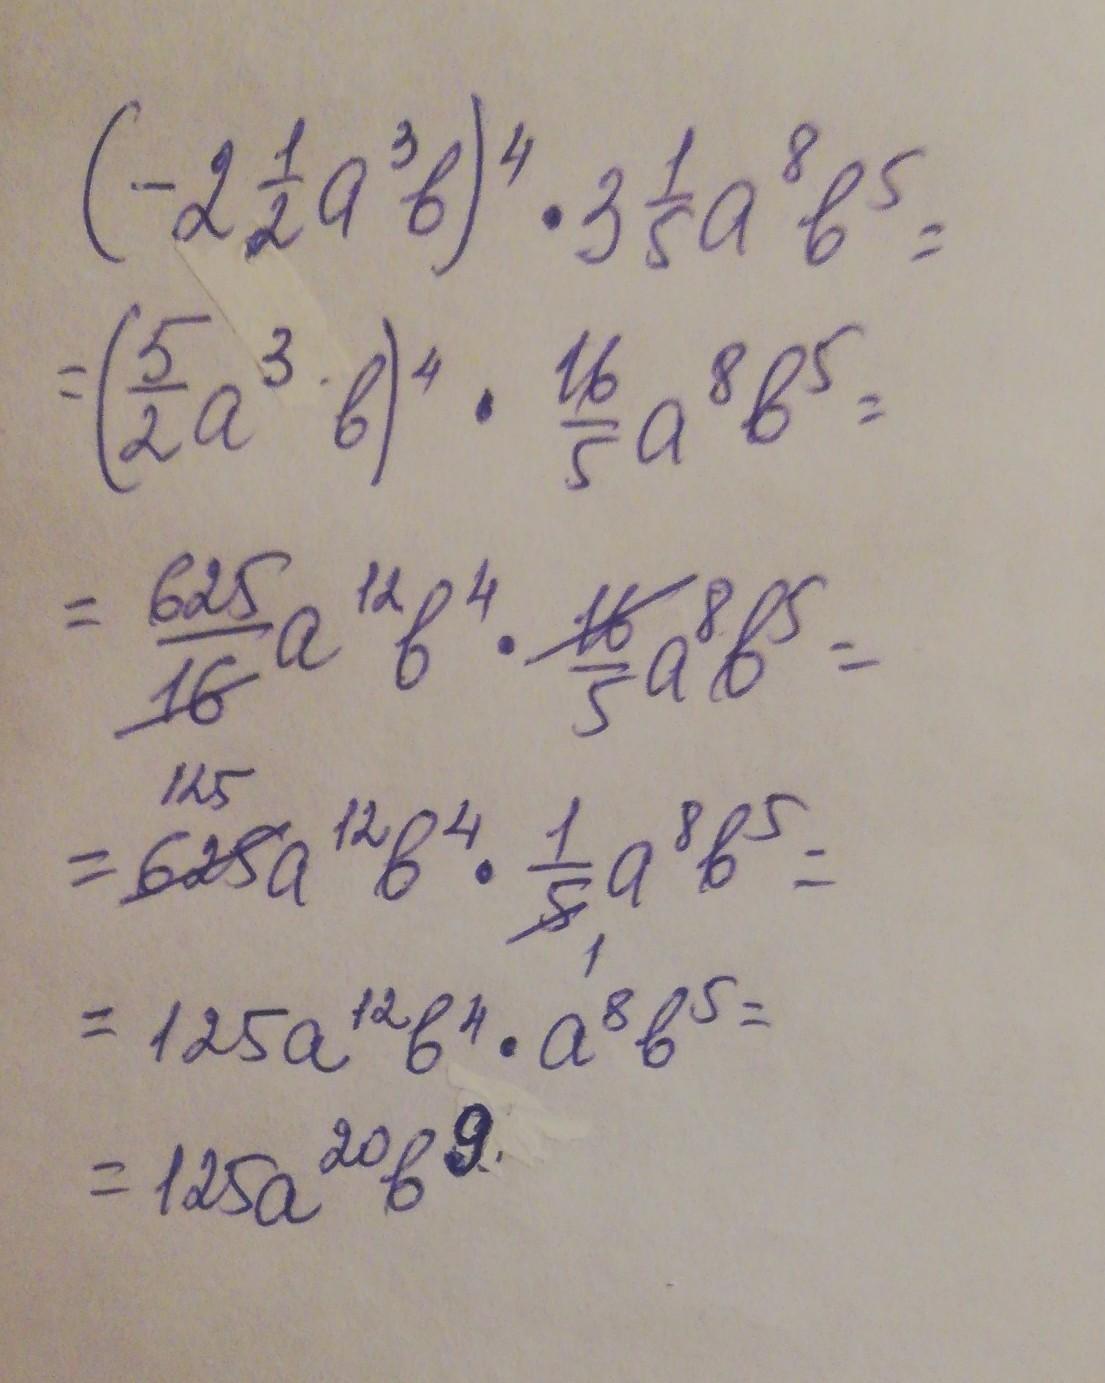 (-2 1/2 a³b)⁴ · 3 1/5 a⁸b⁵ =
= (5/2 a³ · b)⁴ · 16/5 a⁸b⁵ =
= 625/16 a¹²b⁴ · 16/5 a⁸b⁵ =
125
= 625a¹²b⁴ · 1/5 a⁸b⁵ =
1
= 125a¹²b⁴ · a⁸b⁵ =
= 125a²⁰b⁹.